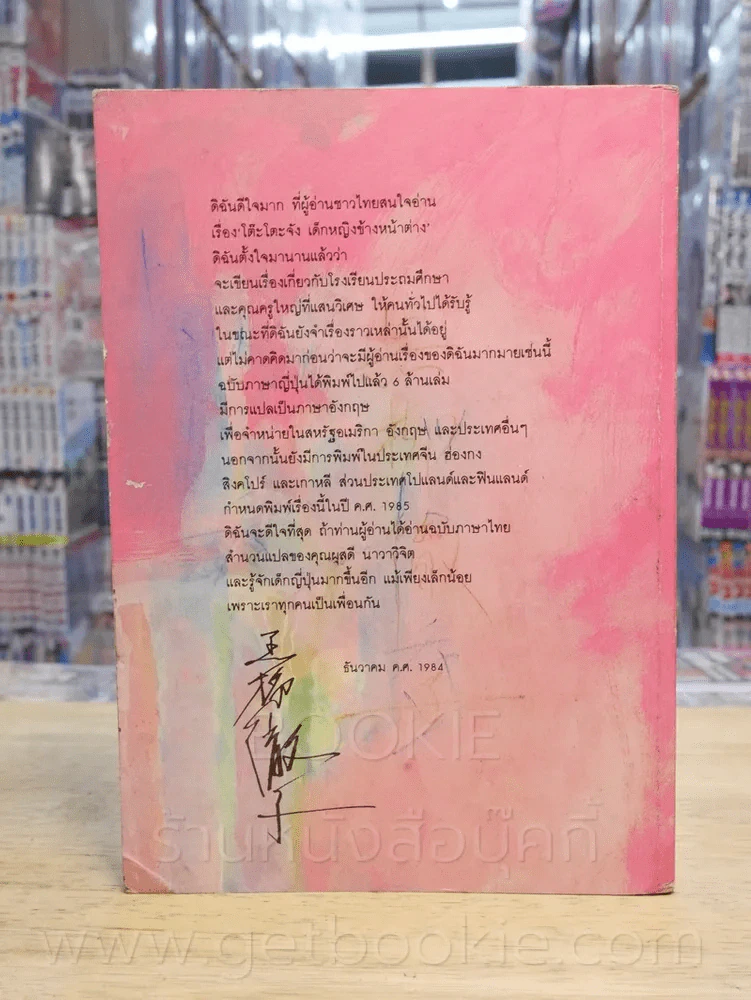 ดิฉันดีใจมาก ที่ผู้อ่านชาวไทยสนใจอ่าน
เรื่อง'โต๊ะโตะจัง เด็กหญิงข้างหน้าต่าง'
ดิฉันตั้งใจมานานแล้วว่า
จะเขียนเรื่องเกี่ยวกับโรงเรียนประถมศึกษา
และคุณครูใหญ่ที่แสนวิเศษ ให้คนทั่วไปได้รับรู้
ในขณะที่ดิฉันยังจำเรื่องราวเหล่านั้นได้อยู่
แต่ไม่คาดคิดมาก่อนว่าจะมีผู้อ่านเรื่องของดิฉันมากมายเช่นนี้
ฉบับภาษาญี่ปุ่นได้พิมพ์ไปแล้ว ๖ ล้านเล่ม
มีการแปลเป็นภาษาอังกฤษ
เพื่อจำหน่ายในสหรัฐอเมริกา อังกฤษ และประเทศอื่นๆ
นอกจากนั้นยังมีการพิมพ์ในประเทศจีน ฮ่องกง
สิงคโปร์ และเกาหลี ส่วนประเทศโปแลนด์และฟินแลนด์
กำหนดพิมพ์เรื่องนี้ในปี ค.ศ. 1985
ดิฉันจะดีใจที่สุด ถ้าท่านผู้อ่านได้อ่านฉบับภาษาไทย
สำนวนแปลของคุณผุสดี นาวาวิจิต
และรู้จักเด็กญี่ปุ่นมากขึ้นอีก แม้เพียงเล็กน้อย
เพราะเราทุกคนเป็นเพื่อนกัน
ธันวาคม ค.ศ. 1984
徹子
BOOKIE
ร้านหนังสือบุ๊คกี้
www.getbookie.com